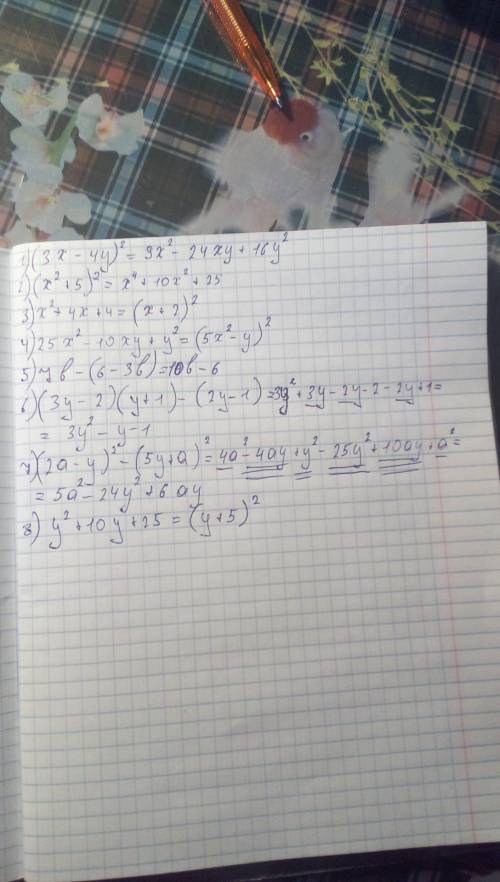 1) (3x - 4y)² = 9x² - 24xy + 16y²
2) (x² + 5)² = x⁴ + 10x² + 25
3) x² + 4x + 4 = (x + 2)²
4) 25x² - 10xy + y² = (5x² - y)²
5) 7b - (6 - 3b) = 10b - 6
6) (3y - 2)(y + 1) - (2y - 1) = 3y² + 3y - 2y - 2 - 2y + 1 =
= 3y² - y - 1
7) (2a - y)² - (5y + a)² = 4a² - 4ay + y² - 25y² + 10ay + a² =
= 5a² - 24y² + 6ay
8) y² + 10y + 25 = (y + 5)²